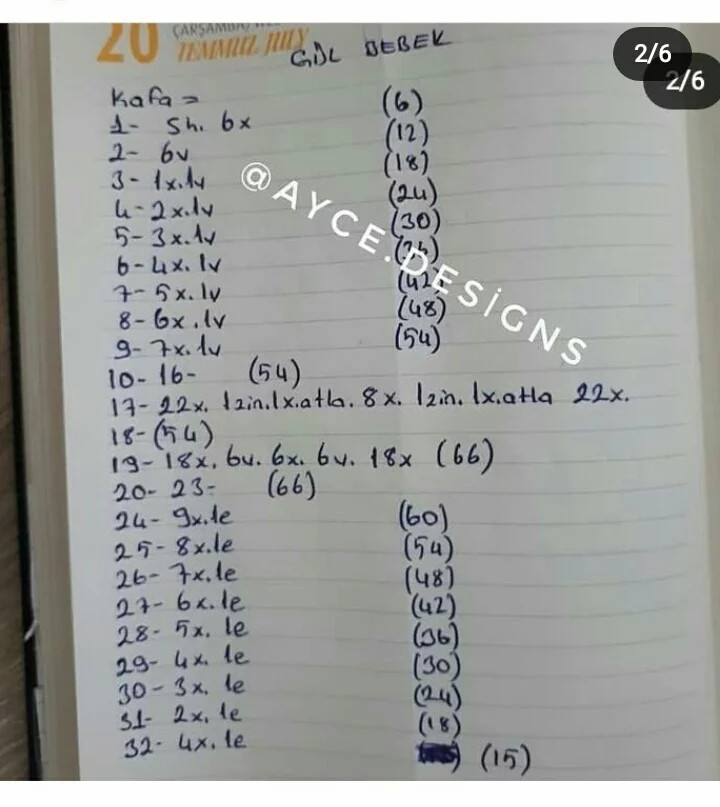 2/6
2/6
20 ÇARŞAMBA
TEMMUZ JULY
GÜL BEBEK
Kafa =
1- Sh. 6x (6)
2- 6v (12)
3- 1x.1v (18)
4- 2x.1v (24)
5- 3x.1v (30)
6- 4x.1v (36)
7- 5x.1v (42)
8- 6x.1v (48)
9- 7x.1v (54)
10-16- (54)
17- 22x. 1zin.1x.atla. 8x. 1zin. 1x.atla 22x.
18-(54)
19- 18x. 6v. 6x. 6v. 18x (66)
20-23- (66)
24- 9x.1e (60)
25- 8x.1e (54)
26- 7x.1e (48)
27- 6x.1e (42)
28- 5x.1e (36)
29- 4x.1e (30)
30- 3x.1e (24)
31- 2x.1e (18)
32- 4x.1e (15)
@AYCE.DESİGNS